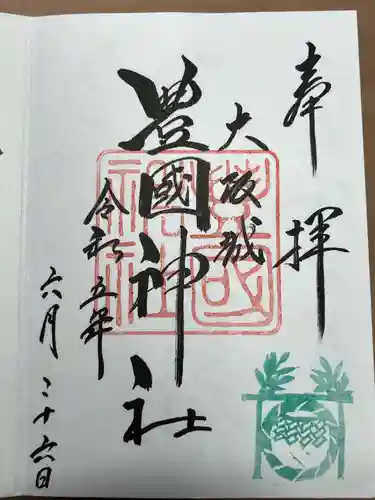 奉拝
大阪城
豊國神社
令和五年
六月二十六日